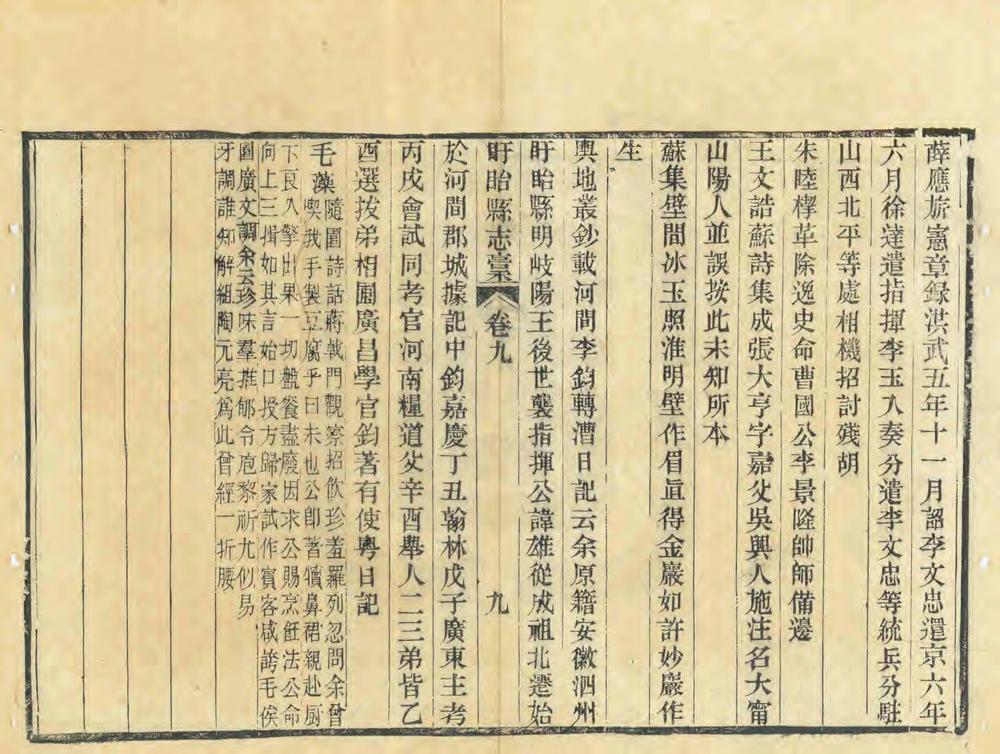 薛應旂憲章録洪武五年十一月詔李文忠還京六年
六月徐達遣指揮李玉入奏分遣李文忠等統兵分駐
山西北平等處相機招討殘胡
朱睦㮮革除逸史命曹國公李景隆帥師備邊
王文誥蘇詩集成張大亨字嘉父吳興人施注名大甯
山陽人並誤按此未知所本
蘇集壁間冰玉照淮明壁作眉眞得金巖如許妙巖作
生
輿地叢鈔載河間李鈞轉漕日記云余原籍安徽泗州
盱眙縣明岐陽王後世襲指揮公諱雄從成祖北遷始
盱眙縣志稾 卷九 九
於河間郡城據記中鈞嘉慶丁丑翰林戊子廣東主考
丙戌會試同考官河南糧道父辛酉舉人二三弟皆乙
酉選拔弟相圃廣昌學官鈞著有使粵日記
毛藻隨園詩話蔣戟門觀察招飲珍羞羅列忽問余曾
喫我手製豆腐乎曰未也公卽著犢鼻裙親赴厨
下良久擎出果一切盤餐盡廢因求公賜烹飪法公命
向上三揖如其言始口授方歸家試作賓客咸誇毛俟
園廣文調余云珍味羣推郇令庖黎祈尤似易
牙調誰知解組陶元亮爲此曾經一折腰